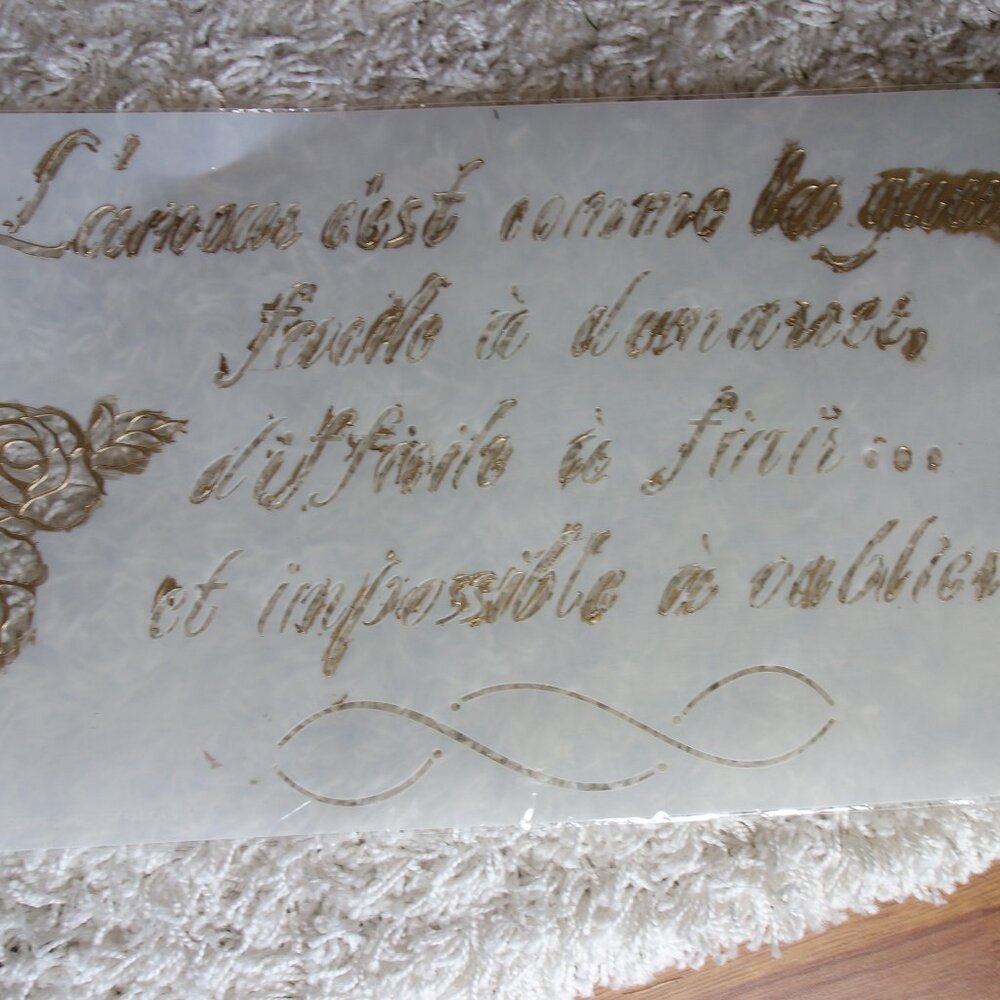 L'amour c'est comme la guerre
facile à démarrer,
difficile à finir...
et impossible à oublier